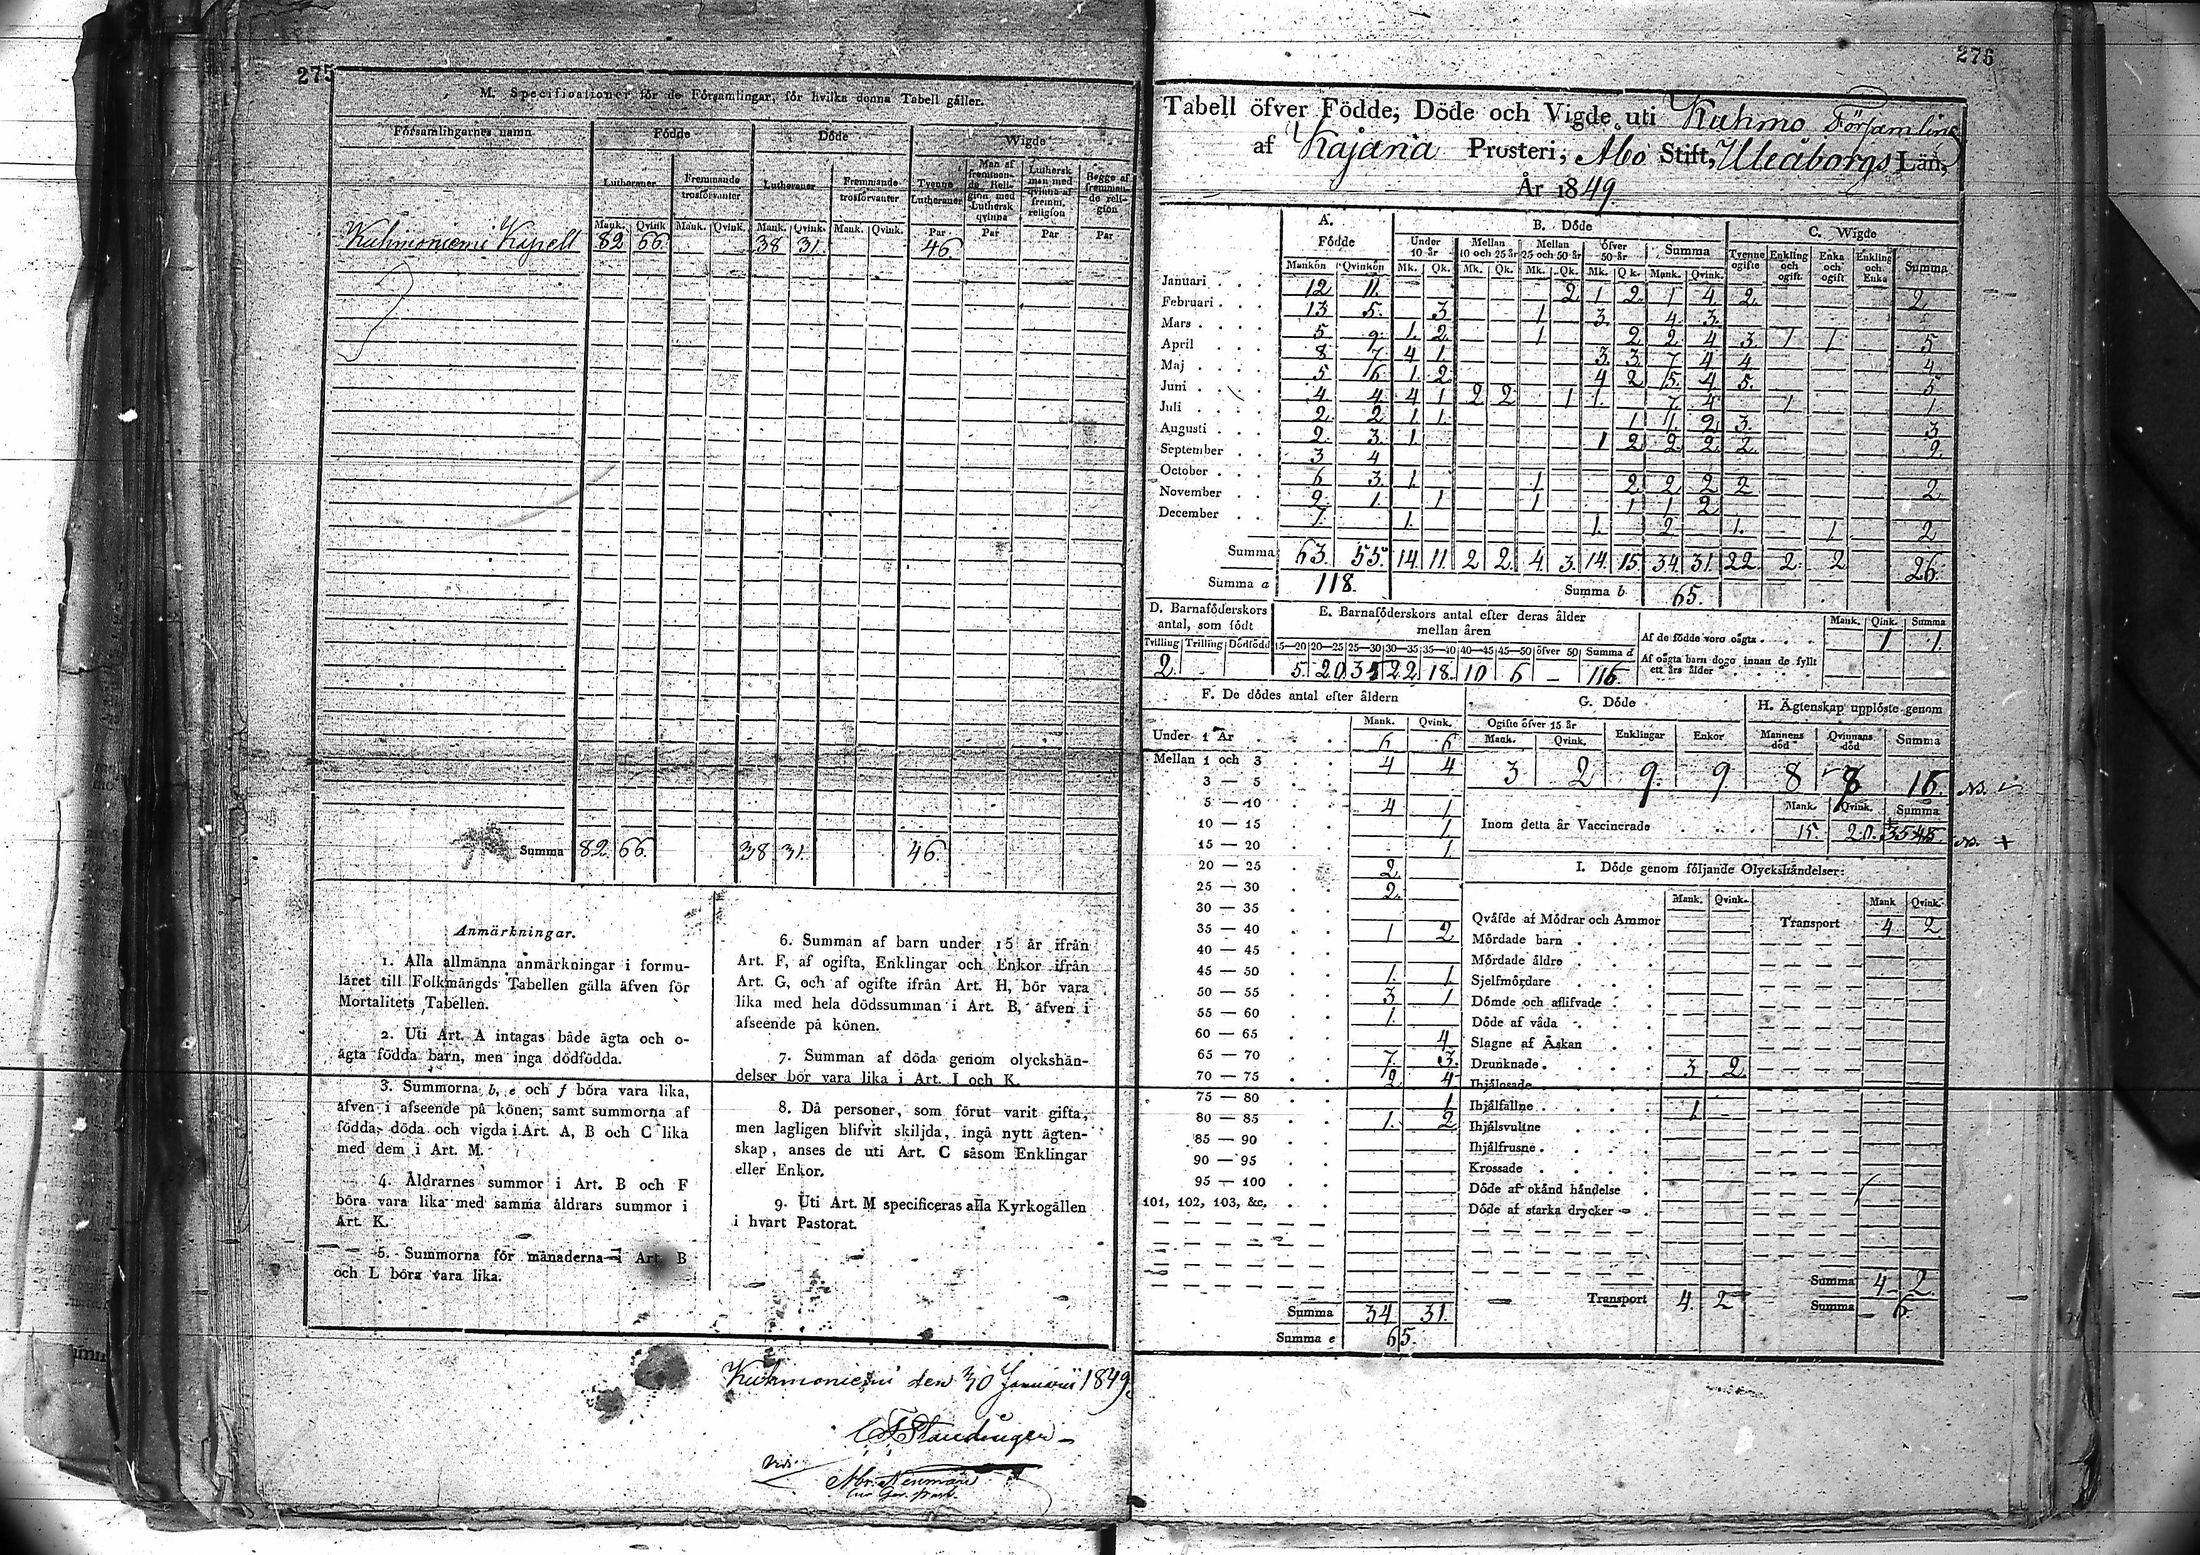 275
M. Specificationer för de Församlingar, för hvilka denna Tabell gäller.
Församlingarnes namn | Födde | Döde | Wigde
Lutheraner | Fremmande trosförvanter | Lutheraner | Fremmande trosförvanter | Tvenne Lutheraner | Man af fremmande Religion med Luthersk qvinna | Luthersk man med qvinna af fremm. religion | Begge af fremmande religion
Mank. | Qvink | Mank. | Qvink. | Mank. | Qvink. | Mank. | Qvink. | Par | Par | Par | Par
Kuhmoniemi Kapell 82 66. 38 31. 46.
Summa 82. 66. 38 31. 46.
Anmärkningar.
1. Alla allmänna anmärkningar i formu-
läret till Folkmängds Tabellen gälla äfven för
Mortalitets Tabellen.
2. Uti Art. A intagas både ägta och o-
ägta födda barn, men inga dödfödda.
3. Summorna b, e och f böra vara lika,
äfven i afseende på könen; samt summorna af
födda, döda och vigda i Art. A, B och C lika
med dem i Art. M.
4. Åldrarnes summor i Art. B och F
böra vara lika med samma åldrars summor i
Art. K.
5. Summorna för månaderna i Art. B
och L böra vara lika.
6. Summan af barn under 15 år ifrån
Art. F, af ogifta, Enklingar och Enkor ifrån
Art. G, och af ogifte ifrån Art. H, bör vara
lika med hela dödssumman i Art. B, äfven i
afseende på könen.
7. Summan af döda genom olyckshän-
delser bör vara lika i Art. I och K.
8. Då personer, som förut varit gifta,
men lagligen blifvit skiljda, ingå nytt ägten-
skap, anses de uti Art. C såsom Enklingar
eller Enkor.
9. Uti Art. M specificeras alla Kyrkogällen
i hvart Pastorat.
Kuhmoniemi den 30 Januarii 1849.
C F Standinger
Vidi.
276
Tabell öfver Födde, Döde och Vigde uti Kuhmo Församling
af Kajana Prosteri, Åbo Stift, Uleåborgs Län,
År 1849.
A. Födde | B. Döde | C. Wigde
Under 10 år | Mellan 10 och 25 år | Mellan 25 och 50 år | öfver 50 år | Summa | Tvenne ogifte | Enkling och ogift | Enka och ogift | Enkling och Enka | Summa
Mankön Qvinkön Mk. Qk. Mk. Qk. Mk. Qk. Mk. Qk. Mank. Qvink.
Januari 12 11. 2 1. 2. 1 4. 2. 2.
Februari 13 5. 3 1 3. 4. 3.
Mars 5 9. 1. 2. 1 2 2. 4 3. 1 1. 5
April 8 7. 4 1 3. 3 7 4 4 4.
Maj 5 6 1. 2 4 2 15. 4 5. 5
Juni 4 4 4 1 2 2 1 1. 7 4 1 1.
Juli 2 2 1 1. 1 1. 2 3. 3
Augusti 2. 3. 1 1 2 2 2 2. 2
September 3 4
October 6 3. 1. 1 2 2 2 2 2
November 2. 1. 1 1 1 1 2
December 7. 1. 1. 2. 1. 1. 2
Summa 63. 55. 14. 11. 2 2. 4. 3. 14. 15. 34. 31. 22 2. 2 26.
Summa a 118. Summa b 65.
D. Barnaföderskors antal, som födt
Tvilling Trilling Dödfödd
2.
E. Barnaföderskors antal efter deras ålder mellan åren
15—20 20—25 25—30 30—35 35—40 40—45 45—50 öfver 50 Summa d
5. 20 35 22 18. 10 6 — 116
Mank. Qink. Summa
Af de födde voro oägta 1 1.
Af oägta barn dogo innan de fyllt ett års ålder
F. De dödes antal efter åldern
Mank. Qvink.
Under 1 År 6 6
Mellan 1 och 3 4 4
3 — 5
5 — 10 4 1
10 — 15 1.
15 — 20 1.
20 — 25 2.
25 — 30 2.
30 — 35
35 — 40 1 2
40 — 45
45 — 50 1. 1.
50 — 55 3 1
55 — 60 1.
60 — 65 4
65 — 70 7. 3.
70 — 75 2 4
75 — 80 1
80 — 85 1. 2
85 — 90
90 — 95
95 — 100
101, 102, 103, &c.
Summa 34 31.
Summa e 65.
G. Döde
Ogifte öfver 15 år | Enklingar | Enkor
Mank. Qvink.
3 2 9. 9.
H. Ägtenskap upplöste genom
Mannens död | Qvinnans död | Summa
8 8 16
Mank. Qvink. Summa
Inom detta år Vaccinerade 15. 20. 35
I. Döde genom följande Olyckshändelser:
Mank. Qvink. Mank Qvink.
Qväfde af Mödrar och Ammor
Mördade barn
Mördade äldre
Sjelfmördare
Dömde och aflifvade
Döde af våda
Slagne af Åskan
Drunknade 3 2
Ihjälosade
Ihjälfallne 1
Ihjälsvultne
Ihjälfrusne
Krossade
Döde af okänd händelse
Döde af starka drycker
Transport 4. 2
Transport 4 2
Summa 4 2.
Summa 6.